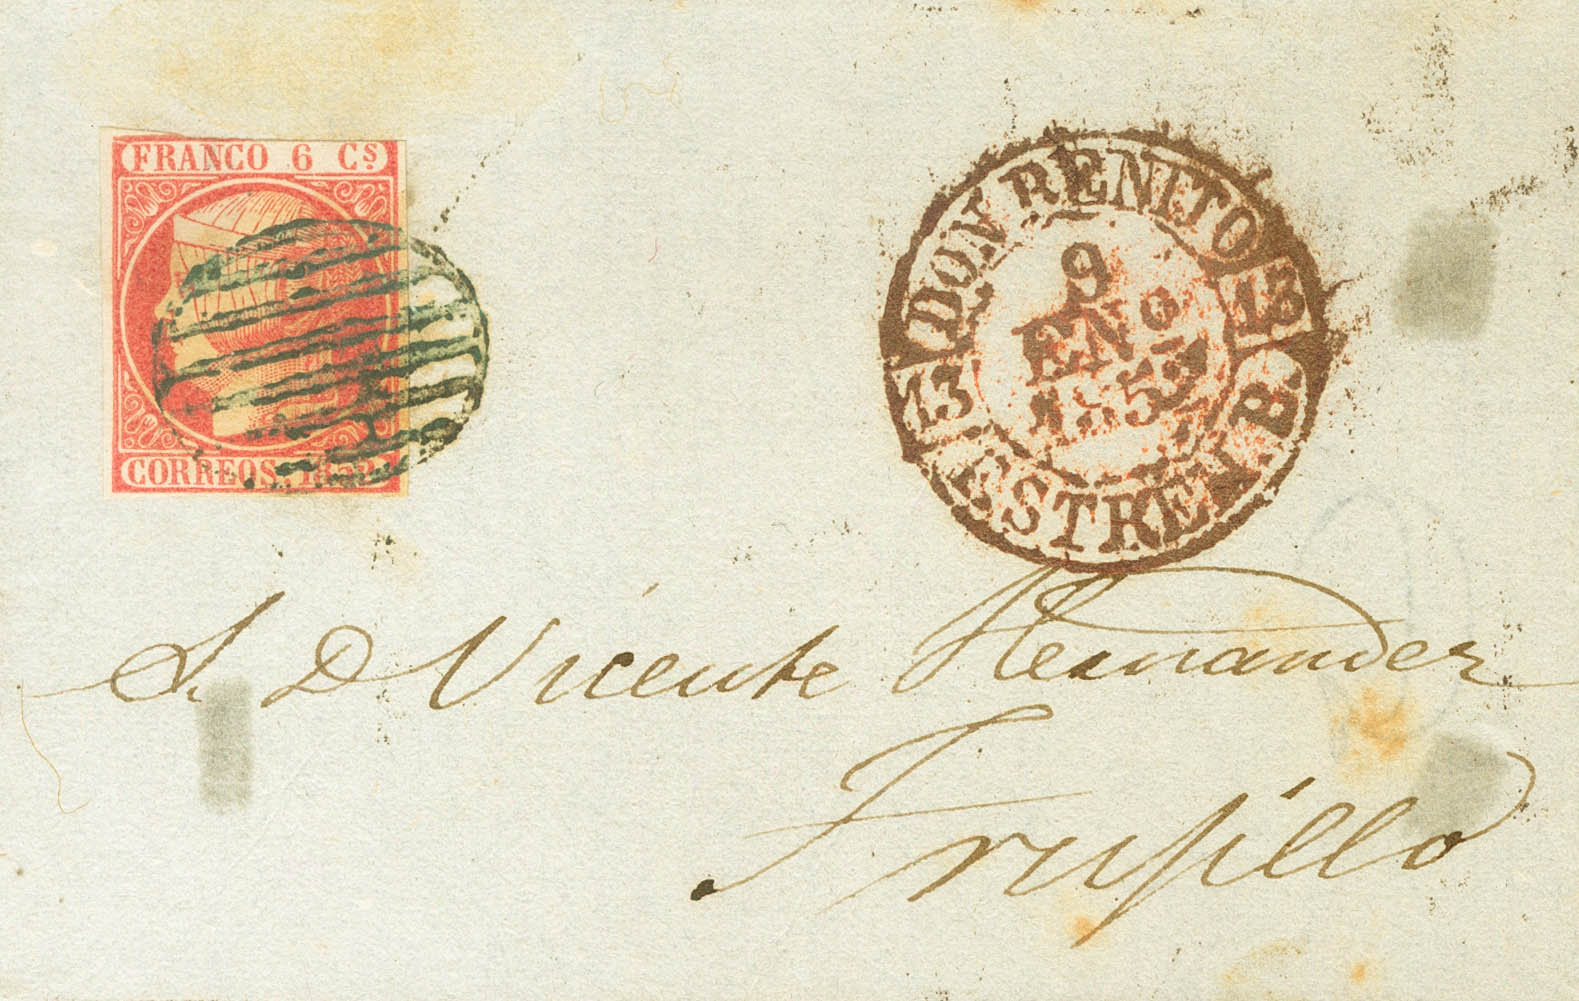 FRANCO 6 Cs
CORREOS. 1852
DON BENITO
13 13
9
ENº
1853
ESTREM. B.
S. D Vicente Hernandez
Trujillo